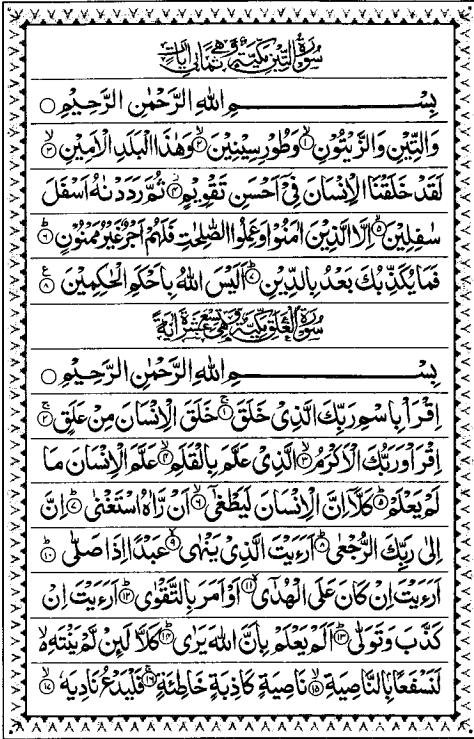 سُوْرَةُ التِّيْنِ مَكِّيَّةٌ وَّهِيَ ثَمَانِيْ اٰيَاتٍ
بِسْمِ اللهِ الرَّحْمٰنِ الرَّحِيْمِ ○
وَالتِّيْنِ وَالزَّيْتُوْنِ ۙ﴿۱﴾ وَطُوْرِ سِيْنِيْنَ ۙ﴿۲﴾ وَهٰذَا الْبَلَدِ الْاَمِيْنِ ۙ﴿۳﴾
لَقَدْ خَلَقْنَا الْاِنْسَانَ فِيْۤ اَحْسَنِ تَقْوِيْمٍ ۙ﴿۴﴾ ثُمَّ رَدَدْنٰهُ اَسْفَلَ
سٰفِلِيْنَ ۙ﴿۵﴾ اِلَّا الَّذِيْنَ اٰمَنُوْا وَعَمِلُوا الصّٰلِحٰتِ فَلَهُمْ اَجْرٌ غَيْرُ مَمْنُوْنٍ ؕ﴿۶﴾
فَمَا يُكَذِّبُكَ بَعْدُ بِالدِّيْنِ ؕ﴿۷﴾ اَلَيْسَ اللهُ بِاَحْكَمِ الْحٰكِمِيْنَ ﴿۸﴾ ع
سُوْرَةُ الْعَلَقِ مَكِّيَّةٌ وَّهِيَ تِسْعَ عَشْرَةَ اٰيَةً
بِسْمِ اللهِ الرَّحْمٰنِ الرَّحِيْمِ ○
اِقْرَاْ بِاسْمِ رَبِّكَ الَّذِيْ خَلَقَ ۚ﴿۱﴾ خَلَقَ الْاِنْسَانَ مِنْ عَلَقٍ ۚ﴿۲﴾
اِقْرَاْ وَرَبُّكَ الْاَكْرَمُ ۙ﴿۳﴾ الَّذِيْ عَلَّمَ بِالْقَلَمِ ۙ﴿۴﴾ عَلَّمَ الْاِنْسَانَ مَا
لَمْ يَعْلَمْ ؕ﴿۵﴾ كَلَّاۤ اِنَّ الْاِنْسَانَ لَيَطْغٰۤى ۙ﴿۶﴾ اَنْ رَّاٰهُ اسْتَغْنٰى ؕ﴿۷﴾ اِنَّ
اِلٰى رَبِّكَ الرُّجْعٰى ؕ﴿۸﴾ اَرَءَيْتَ الَّذِيْ يَنْهٰى ۙ﴿۹﴾ عَبْدًا اِذَا صَلّٰى ؕ﴿۱۰﴾
اَرَءَيْتَ اِنْ كَانَ عَلَى الْهُدٰۤى ۙ﴿۱۱﴾ اَوْ اَمَرَ بِالتَّقْوٰى ؕ﴿۱۲﴾ اَرَءَيْتَ اِنْ
كَذَّبَ وَتَوَلّٰى ؕ﴿۱۳﴾ اَلَمْ يَعْلَمْ بِاَنَّ اللهَ يَرٰى ؕ﴿۱۴﴾ كَلَّا لَئِنْ لَّمْ يَنْتَهِ ۙ
لَنَسْفَعًا بِالنَّاصِيَةِ ۙ﴿۱۵﴾ نَاصِيَةٍ كَاذِبَةٍ خَاطِئَةٍ ۚ﴿۱۶﴾ فَلْيَدْعُ نَادِيَهٗ ۙ﴿۱۷﴾